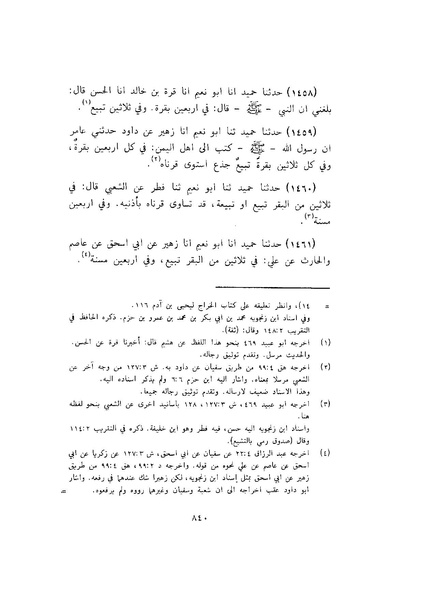 (١٤٥٨) حدثنا حميد انا ابو نعيم انا قرة بن خالد انا الحسن قال:
بلغني ان النبي - ﷺ - قال: في اربعين بقرة. وفي ثلاثين تبيع(١).
(١٤٥٩) حدثنا حميد ثنا ابو نعيم انا زهير عن داود حدثني عامر
ان رسول الله - ﷺ - كتب الى اهل اليمن: في كل اربعين بقرةٌ،
وفي كل ثلاثين بقرةٌ تبيعٌ جذع استوى قرناه(٢).
(١٤٦٠) حدثنا حميد ثنا ابو نعيم ثنا فطر عن الشعبي قال: في
ثلاثين من البقر تبيع او تبيعة، قد تساوى قرناه بأذنيه. وفي اربعين
مسنة(٣).
(١٤٦١) حدثنا حميد انا ابو نعيم انا زهير عن ابي اسحق عن عاصم
والحارث عن علي: في ثلاثين من البقر تبيع، وفي اربعين مسنة(٤).
= ١٤)، وانظر تعليقه على كتاب الخراج ليحيى بن آدم ١١٦.
وفي اسناد ابن زنجويه محمد بن ابي بكر بن محمد بن عمرو بن حزم. ذكره الحافظ في
التقريب ١٤٨:٢ وقال: (ثقة).
(١) اخرجه ابو عبيد ٤٦٩ بنحو هذا اللفظ عن هشيم قال: أخبرنا قرة عن الحسن.
والحديث مرسل. وتقدم توثيق رجاله.
(٢) اخرجه هق ٩٩:٤ من طريق سفيان عن داود به. ش ١٢٧:٣ من وجه آخر عن
الشعبي مرسلا بمعناه. واشار اليه ابن حزم ٦:٦ ولم يذكر اسناده اليه.
وهذا الاسناد ضعيف لارساله. وتقدم توثيق رجاله جميعا.
(٣) اخرجه ابو عبيد ٤٦٩، ش ١٢٧:٣، ١٢٨ بأسانيد اخرى عن الشعبي بنحو لفظه
هنا.
واسناد ابن زنجويه اليه حسن، فيه فطر وهو ابن خليفة. ذكره في التقريب ١١٤:٢
وقال (صدوق رمي بالتشيع).
(٤) اخرجه عبد الرزاق ٢٢:٤ عن سفيان عن ابي اسحق، ش ١٢٧:٣ عن زكريا عن ابي
اسحق عن عاصم عن علي نحوه من قوله. واخرجه د ٩٩:٢، هق ٩٩:٤ من طريق
زهير عن ابي اسحق بمثل إسناد ابن زنجويه، لكن زهيرا شك عندهما في رفعه. واشار
ابو داود عقب اخراجه الى ان شعبة وسفيان وغيرهما رووه ولم يرفعوه. =
٨٤٠